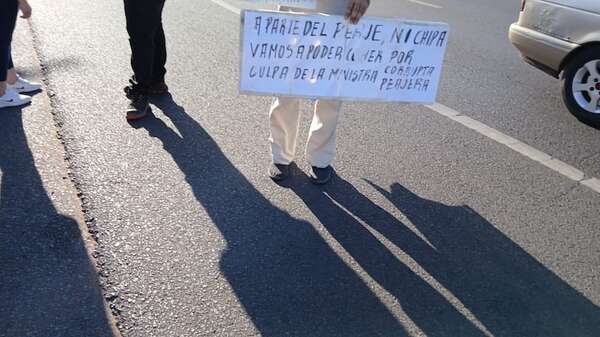 A PARTE DEL PEAJE, NI CHIPA
VAMOS A PODER COMER POR
CULPA DE LA MINISTRA CORRUPTA
PEAJERA